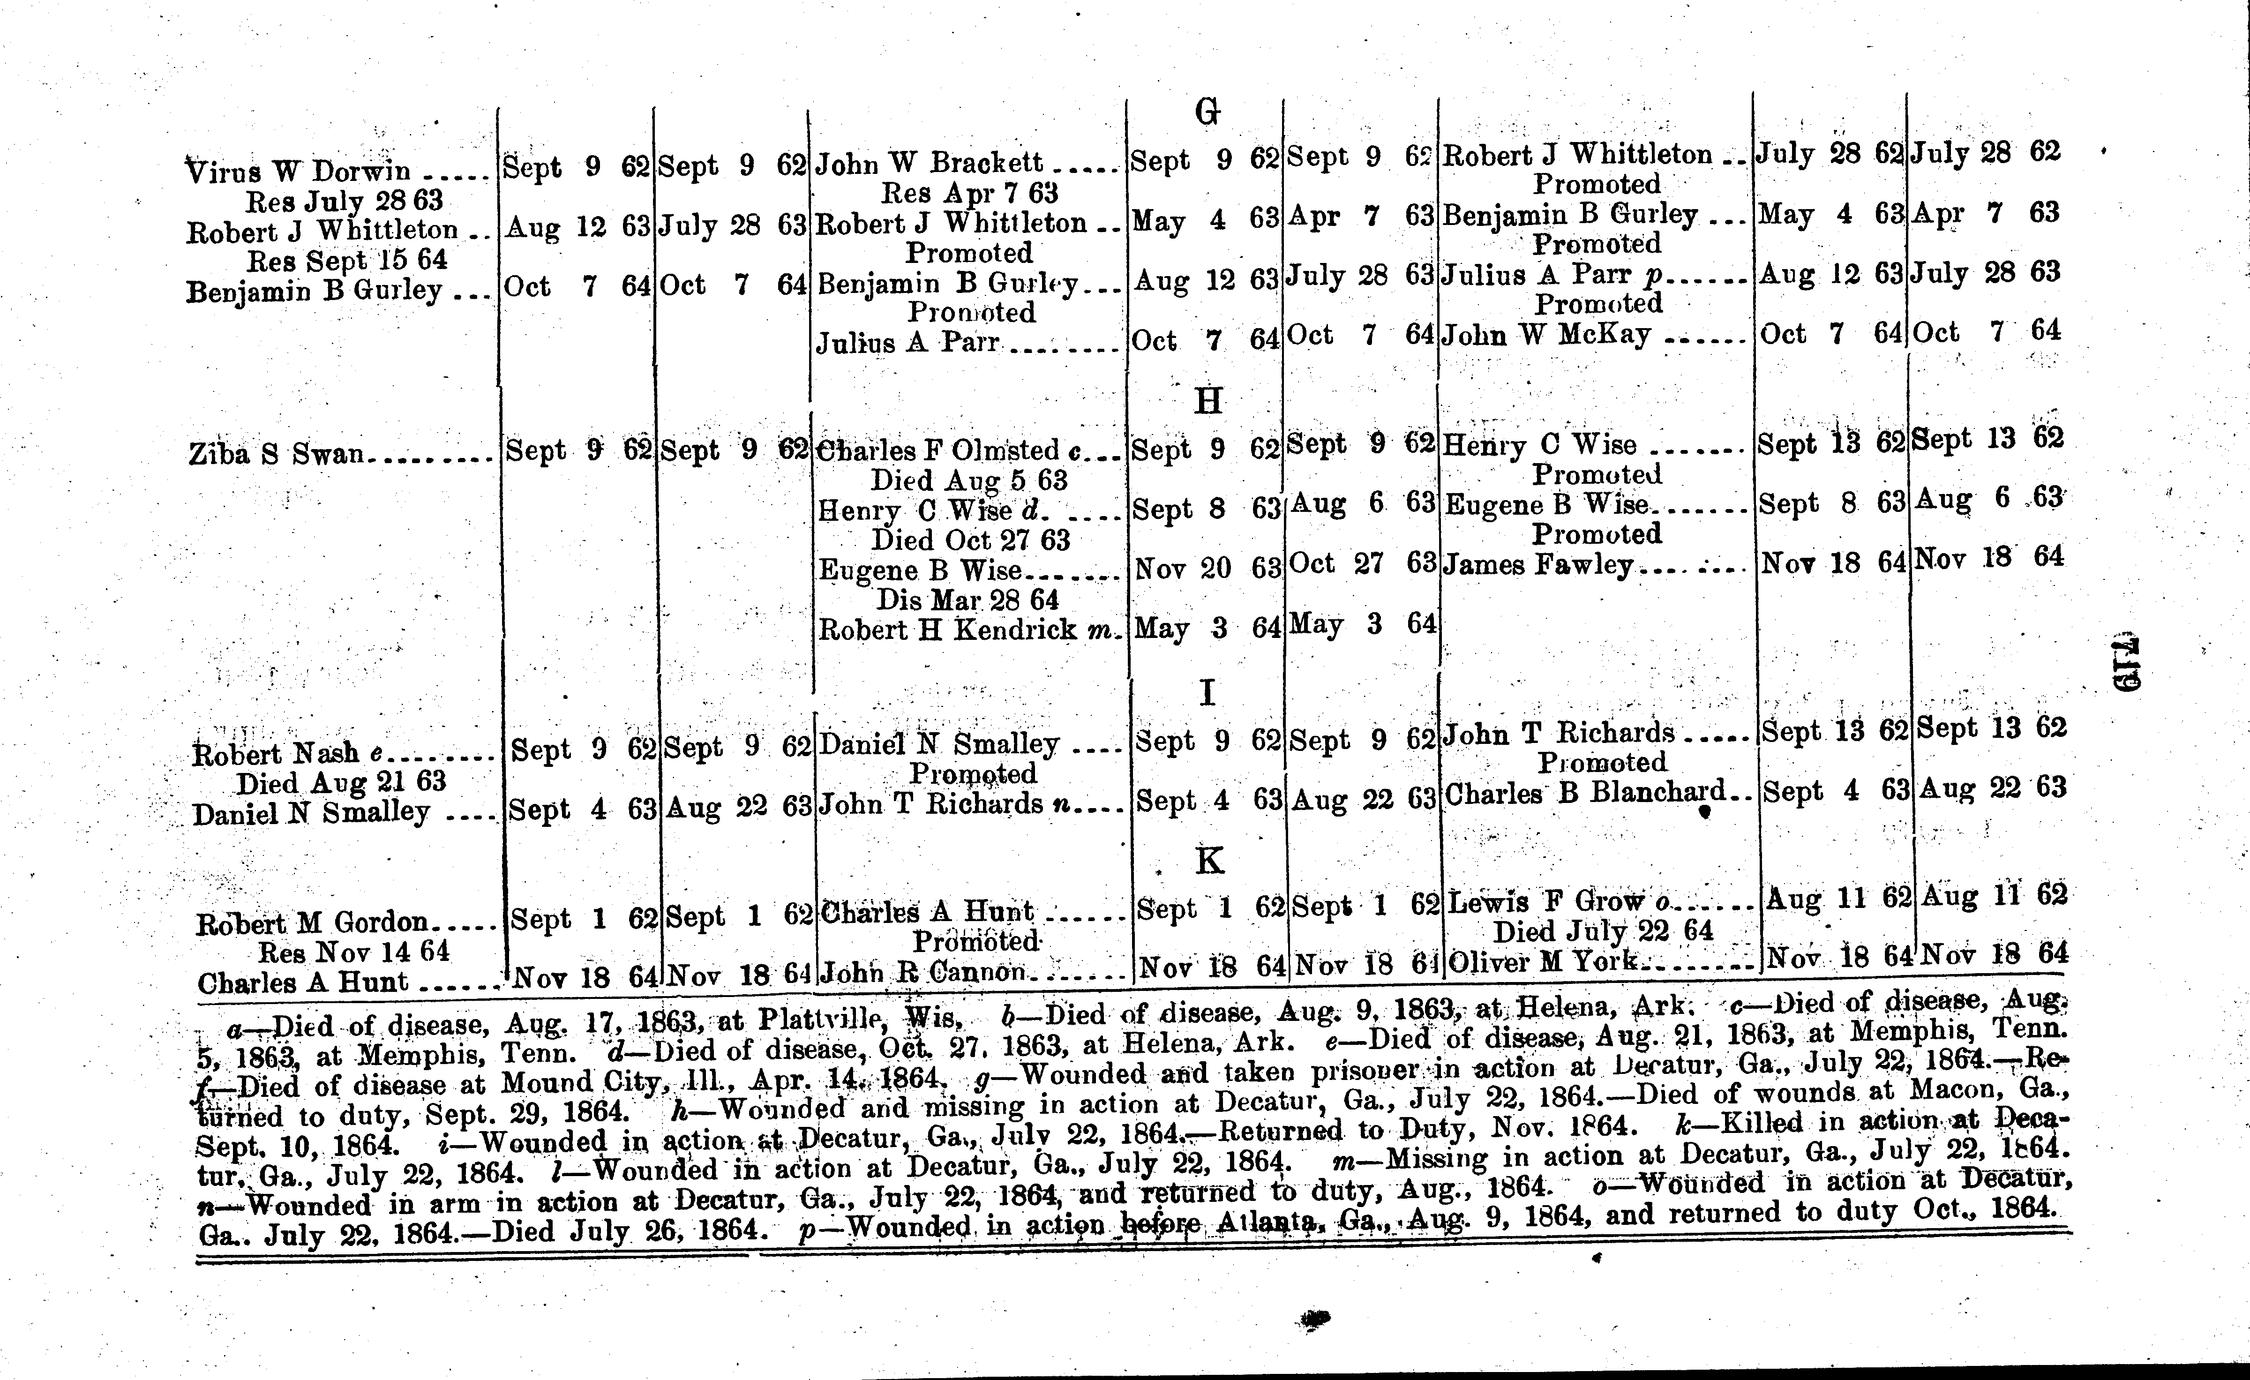 G
Virus W Dorwin ..... Sept 9 62 Sept 9 62 John W Brackett ..... Sept 9 62 Sept 9 62 Robert J Whittleton .. July 28 62 July 28 62
Res July 28 63 Res Apr 7 63 Promoted
Robert J Whittleton .. Aug 12 63 July 28 63 Robert J Whittleton .. May 4 63 Apr 7 63 Benjamin B Gurley ... May 4 63 Apr 7 63
Res Sept 15 64 Promoted Promoted
Benjamin B Gurley ... Oct 7 64 Oct 7 64 Benjamin B Gurley... Aug 12 63 July 28 63 Julius A Parr p...... Aug 12 63 July 28 63
Promoted Promoted
Julius A Parr ......... Oct 7 64 Oct 7 64 John W McKay ...... Oct 7 64 Oct 7 64
H
Ziba S Swan.......... Sept 9 62 Sept 9 62 Charles F Olmsted c... Sept 9 62 Sept 9 62 Henry C Wise ....... Sept 13 62 Sept 13 62
Died Aug 5 63 Promoted
Henry C Wise d. .... Sept 8 63 Aug 6 63 Eugene B Wise....... Sept 8 63 Aug 6 63
Died Oct 27 63 Promoted
Eugene B Wise....... Nov 20 63 Oct 27 63 James Fawley........ Nov 18 64 Nov 18 64
Dis Mar 28 64
Robert H Kendrick m. May 3 64 May 3 64
719
I
Robert Nash e........ Sept 9 62 Sept 9 62 Daniel N Smalley .... Sept 9 62 Sept 9 62 John T Richards ..... Sept 13 62 Sept 13 62
Died Aug 21 63 Promoted Promoted
Daniel N Smalley .... Sept 4 63 Aug 22 63 John T Richards n.... Sept 4 63 Aug 22 63 Charles B Blanchard.. Sept 4 63 Aug 22 63
K
Robert M Gordon..... Sept 1 62 Sept 1 62 Charles A Hunt ...... Sept 1 62 Sept 1 62 Lewis F Grow o...... Aug 11 62 Aug 11 62
Res Nov 14 64 Promoted Died July 22 64
Charles A Hunt ...... Nov 18 64 Nov 18 64 John R Cannon....... Nov 18 64 Nov 18 64 Oliver M York........ Nov 18 64 Nov 18 64
a—Died of disease, Aug. 17, 1863, at Plattville, Wis. b—Died of disease, Aug. 9, 1863, at Helena, Ark. c—Died of disease, Aug.
5, 1863, at Memphis, Tenn. d—Died of disease, Oct. 27. 1863, at Helena, Ark. e—Died of disease, Aug. 21, 1863, at Memphis, Tenn.
f—Died of disease at Mound City, Ill., Apr. 14. 1864. g—Wounded and taken prisoner in action at Decatur, Ga., July 22, 1864.—Re-
turned to duty, Sept. 29, 1864. h—Wounded and missing in action at Decatur, Ga., July 22, 1864.—Died of wounds at Macon, Ga.,
Sept. 10, 1864. i—Wounded in action at Decatur, Ga., July 22, 1864.—Returned to Duty, Nov. 1864. k—Killed in action at Deca-
tur, Ga., July 22, 1864. l—Wounded in action at Decatur, Ga., July 22, 1864. m—Missing in action at Decatur, Ga., July 22, 1864.
n—Wounded in arm in action at Decatur, Ga., July 22, 1864, and returned to duty, Aug., 1864. o—Wounded in action at Decatur,
Ga.. July 22, 1864.—Died July 26, 1864. p—Wounded in action before Atlanta, Ga., Aug. 9, 1864, and returned to duty Oct., 1864.